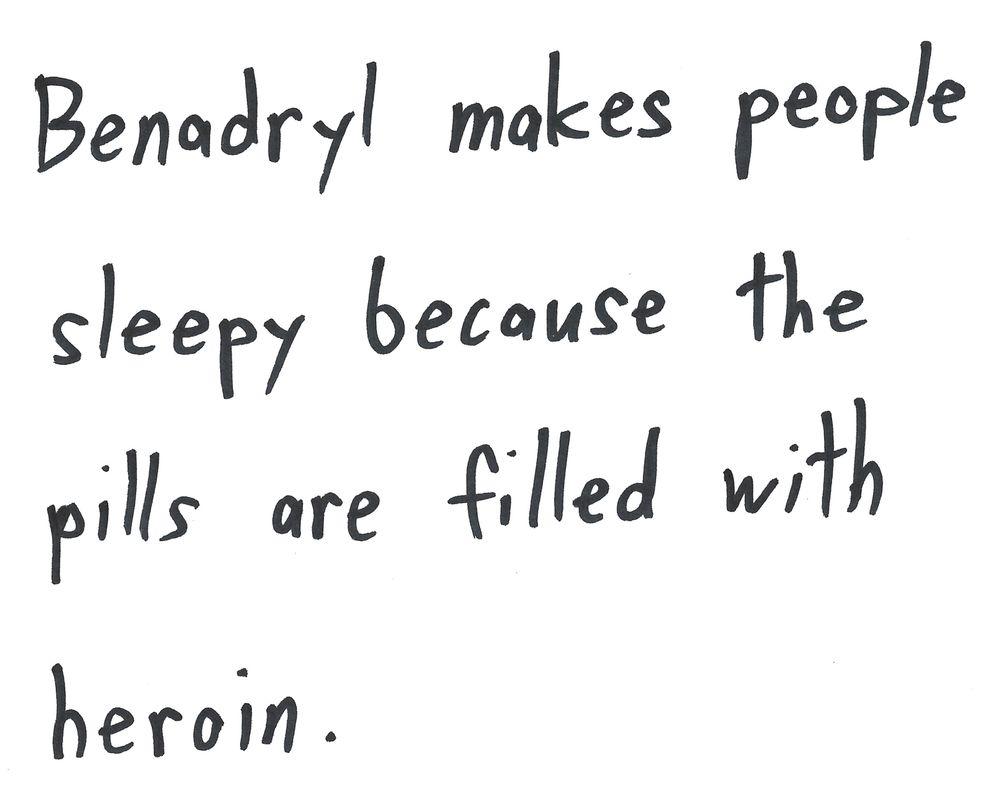 Benadryl makes people
sleepy because the
pills are filled with
heroin.